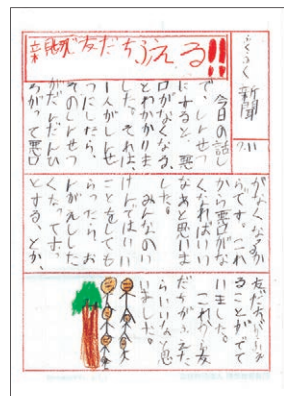 ふくふく新聞
7.11
親切で友だちふえる!!
今日の話し
で、しんせつ
にすると、悪
口がなくなる、
とわかりま
した。それは、
1人がしんせ
つにしたら、
そのしんせつ
がだんだんひ
ろがって悪口
がなくなるか
らです。これ
から悪口がな
くなればいい
なあと思いま
した。
みんなのい
けんではいい
ことをしても
らったら、お
んがえしした
くなって
とする、とか、
友だちがふえ
ることがでて
いました。
これから友
だちがふえた
らいいなと思
いました。